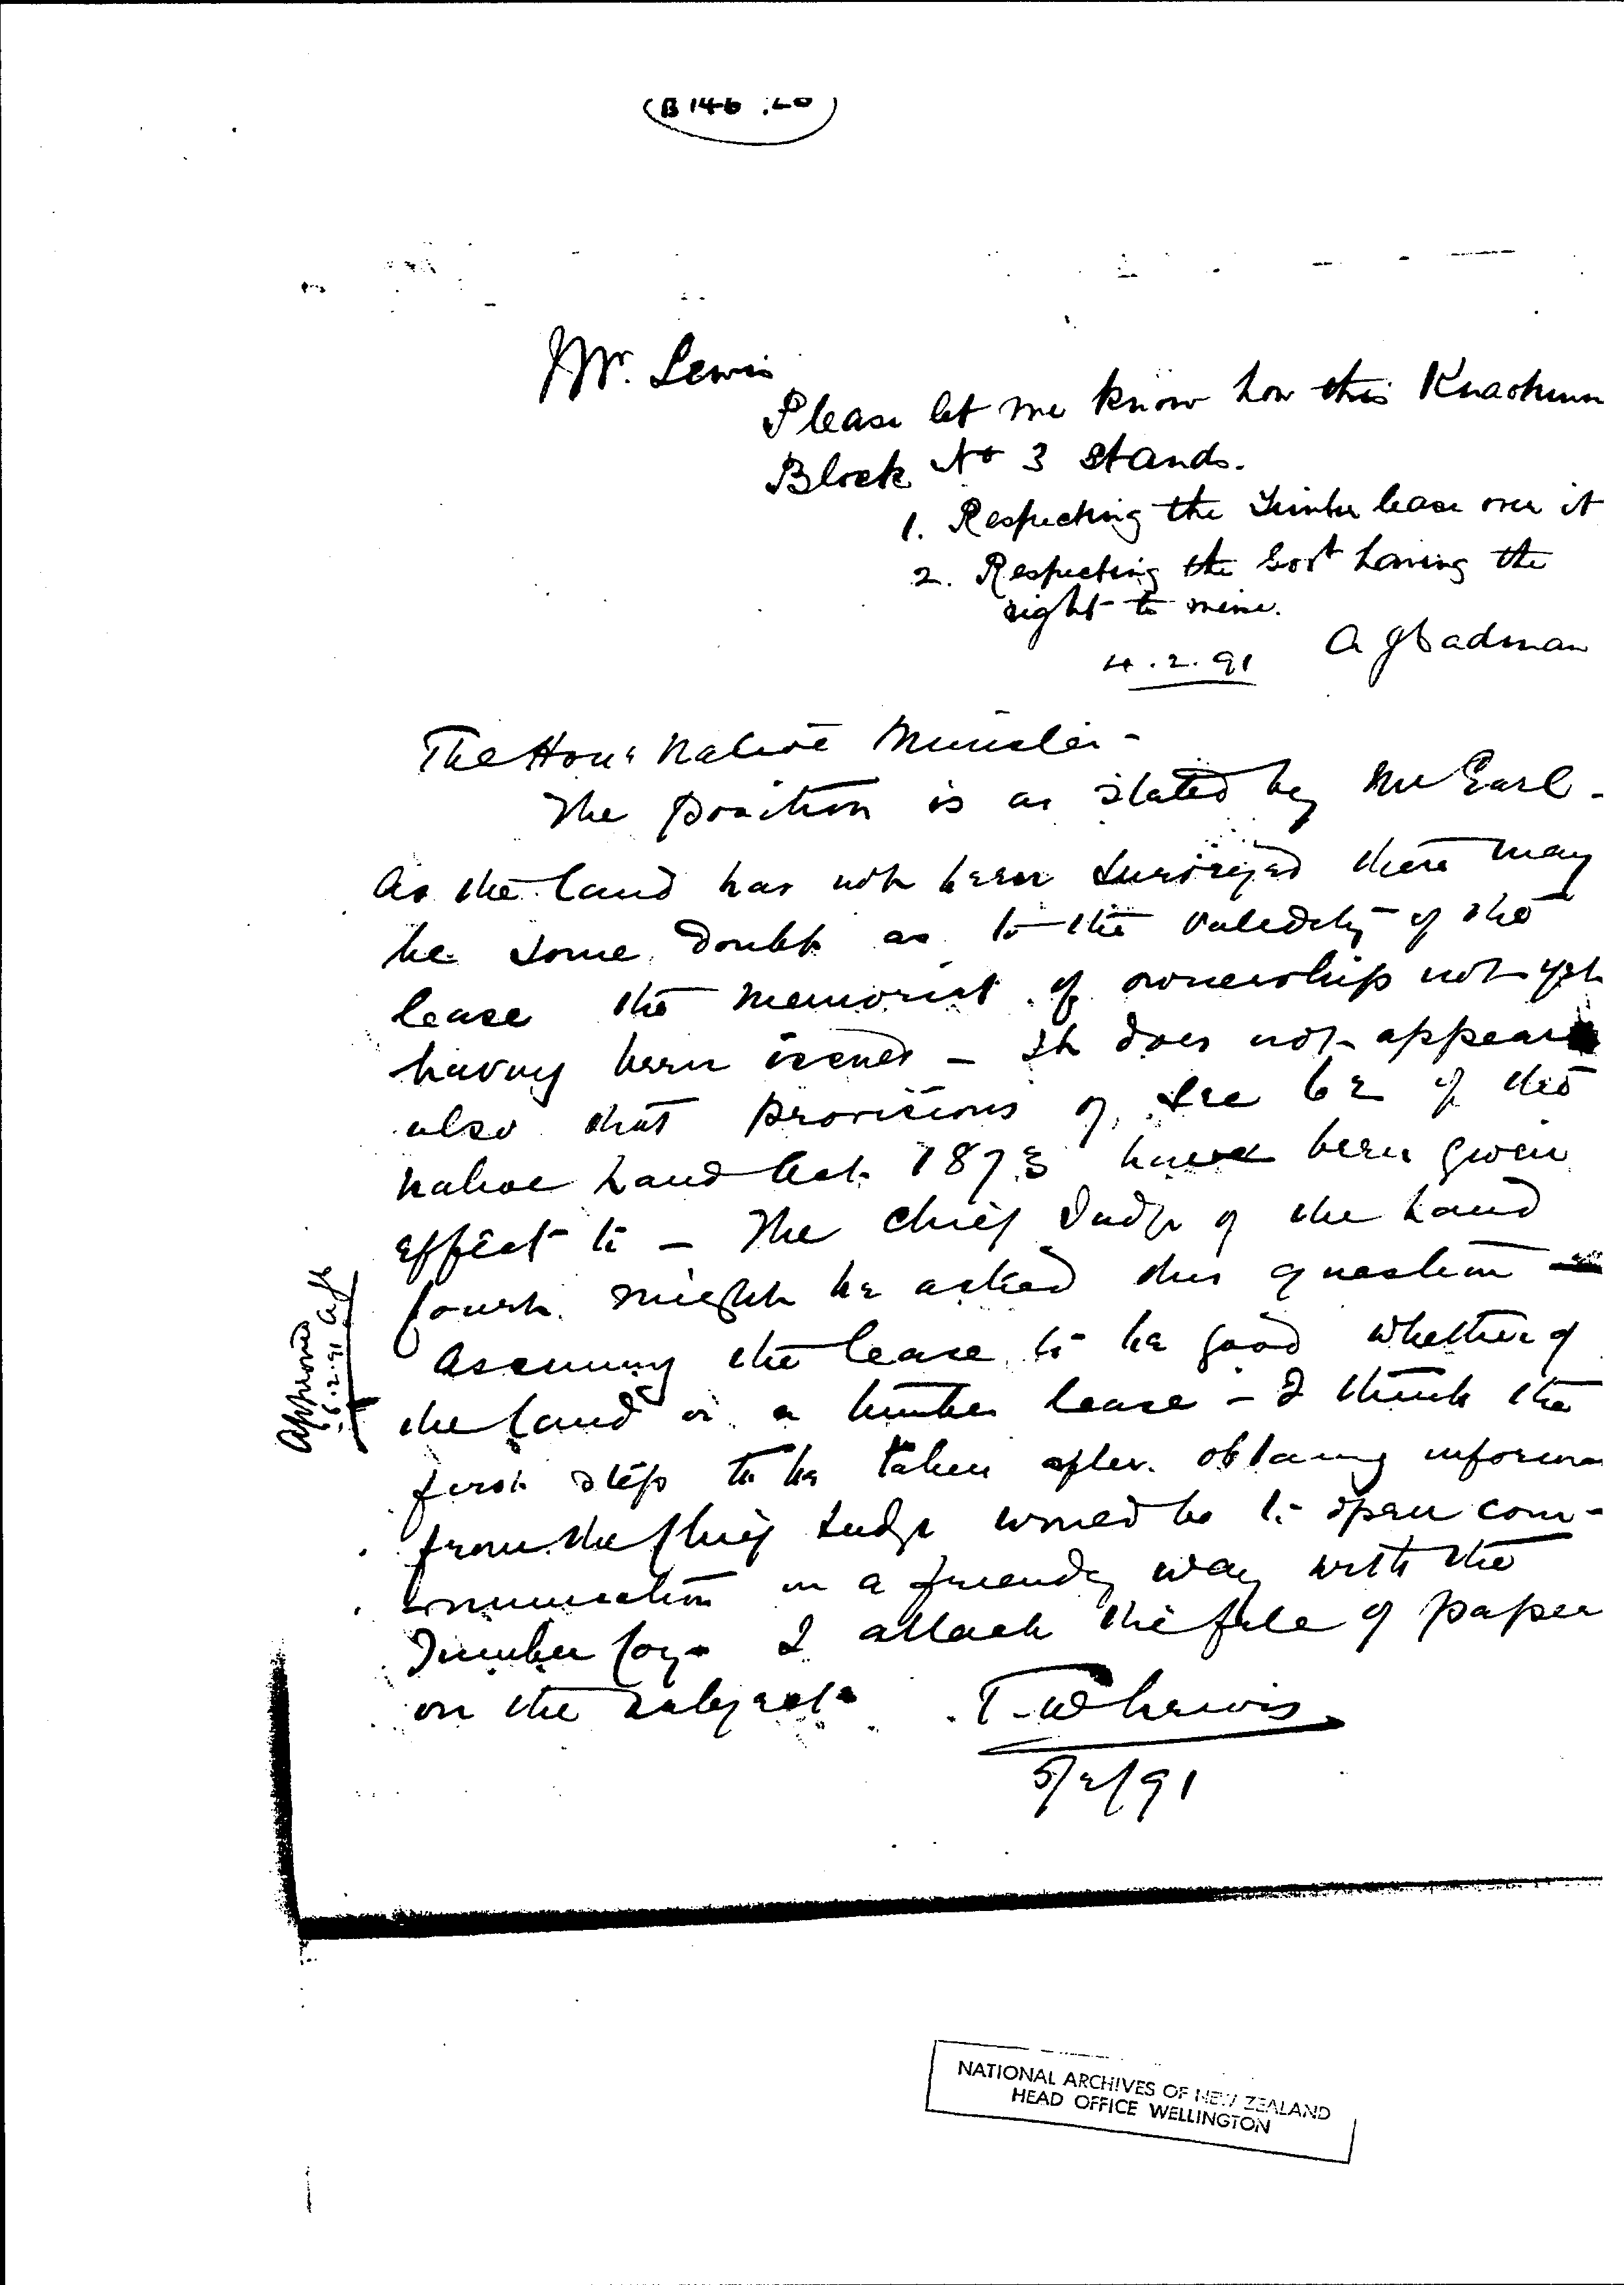 B 146
Mr. Lewis
Please let me know how this Kuaotunu
Block No 3 stands.
1. Respecting the Timber lease over it
2. Respecting the Govt having the
right to mine.
4.2.91 A J Cadman
The Hon. Native Minister -
The position is as stated by Mr Earl -
As the land has not been surveyed there may
be some doubt as to the validity of the
lease the memorial of ownership not yet
having been issued - It does not appear
also that provisions of Sec 62 of the
Native Land Act 1873 have been given
effect to - The Chief Judge of the Land
Court might be asked this question
Assuming the lease to be good whether of
the land or a timber lease - I think the
first step to be taken after obtaing informa
from the Chief Judge would be to open com-
munication in a friendly way with the
Timber Coy - I attach the file of paper
on the subject.
T. W Lewis
5/2/91
Approved
6.2.91 AJC
NATIONAL ARCHIVES OF NEW ZEALAND
HEAD OFFICE WELLINGTON